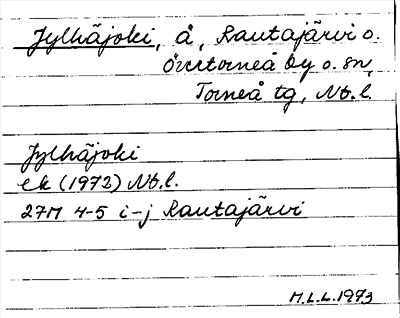 Jylhäjoki, å, Rautajärvi o.
Övertorneå by o. sn,
Torneå tg, Nb.l.
Jylhäjoki
ek (1972) Nb.l.
27M 4-5 i-j Rautajärvi
M.L.L. 1973